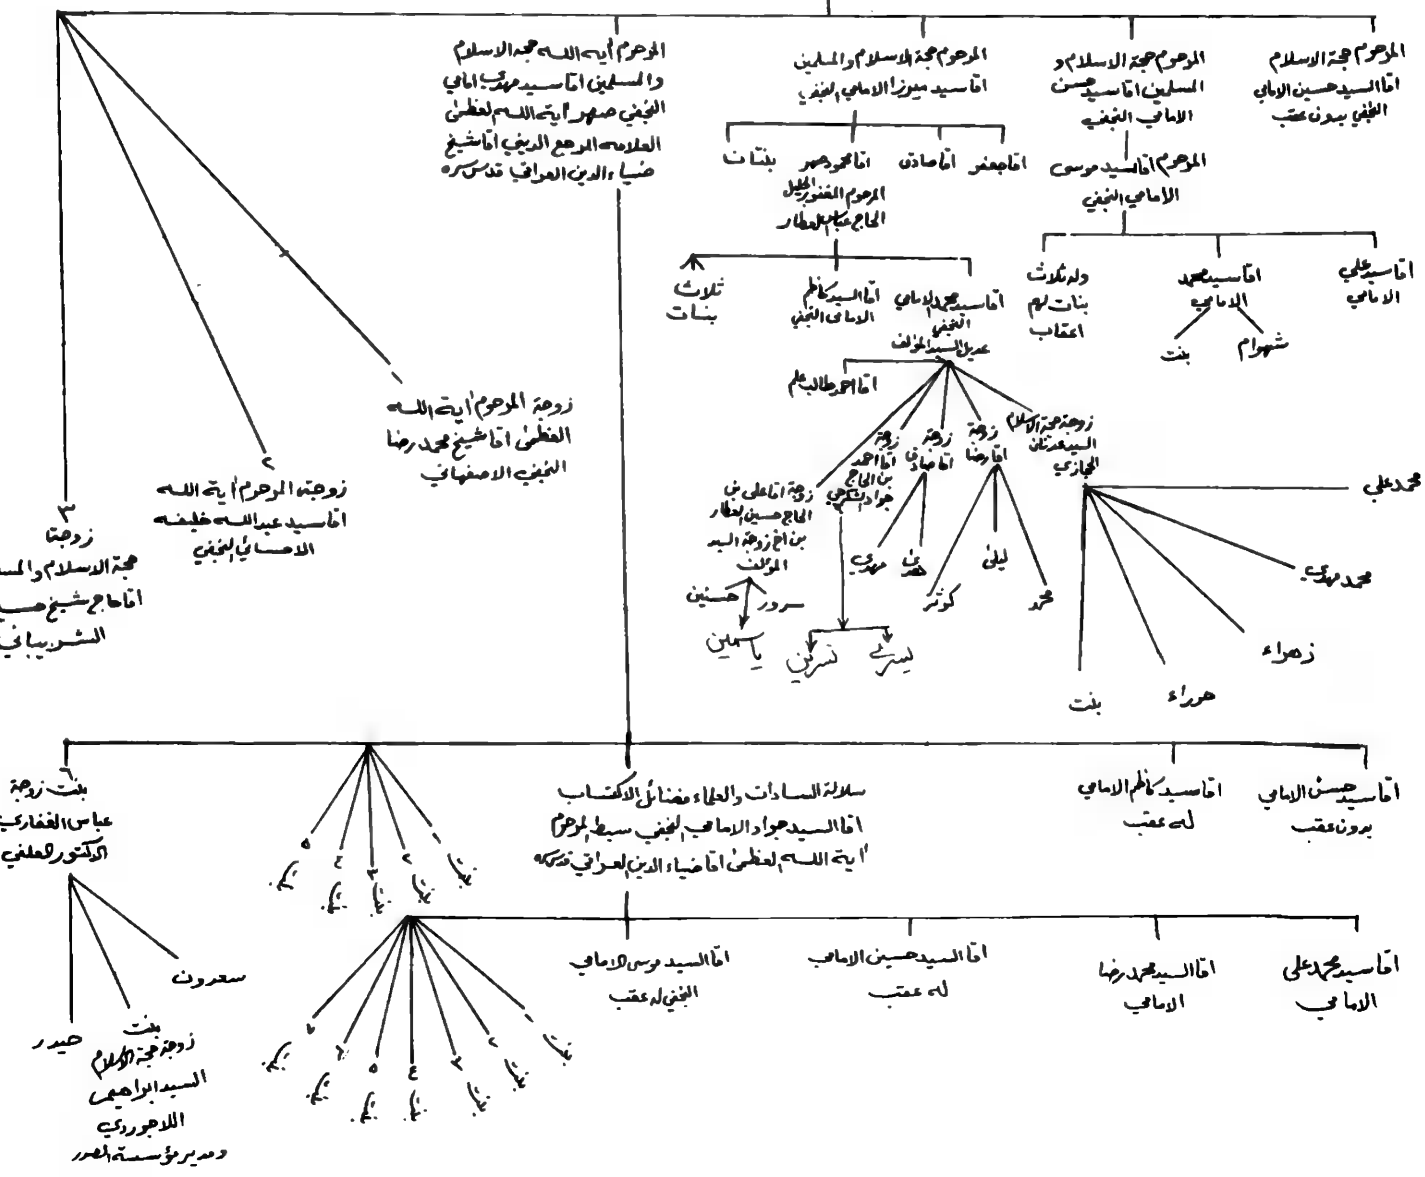 المرحوم حجة الاسلام
اقا السيد حسين الامامي
النجفي بدون عقب
المرحوم حجة الاسلام و
المسلمين اقا سيد حسن
الامامي النجفي
المرحوم اقا سيد موسى
الامامي النجفي
اقا سيد علي
الامامي
اقا سيد محمد
الامامي
شهرام
بنت
وله ثلاث
بنات لهم
اعقاب
المرحوم حجة الاسلام والمسلمين
اقا سيد ميرزا الامامي النجفي
اقا جعفر
اقا صادق
اقا محمود صهر
المرحوم المغفور الجليل
الحاج عباس العطار
بنتان
اقا سيد محمد الامامي
النجفي
عديل السيد المؤلف
اقا السيد كاظم
الامامي النجفي
ثلاث
بنات
اقا احمد طالب علم
زوجة حجة الاسلام
السيد عدنان
الحجازي
محمد علي
محمد مهدي
زهراء
حوراء
بنت
زوجة
اقا رضا
محمد
ليلى
كوثر
زوجة
اقا صادق
هدى
مهدي
زوجة
اقا احمد
بن الحاج
جواد
يسرى
نسرين
زوجة اقا علي بن
الحاج حسين العطار
بن اخ زوجة السيد
المؤلف
سرور
حسنين
ياسمين
المرحوم أية الله حجة الاسلام
والمسلمين اقا سيد مهدي امامي
النجفي صهر أية الله العظمى
العلامه المرجع الديني اقا شيخ
ضياء الدين العراقي قدس سره
١
زوجة المرحوم أية الله
العظمى اقا شيخ محمد رضا
النجفي الاصفهاني
٢
زوجة المرحوم أية الله
اقا سيد عبد الله خليفه
الاحسائي النجفي
٣
زوجتا
حجة الاسلام والمس
اقا حاج شيخ حس
الشربياني
اقا سيد حسن الامامي
بدون عقب
اقا سيد كاظم الامامي
له عقب
سلالة السادات والعلماء فضائل الاكتساب
اقا السيد جواد الامامي النجفي سبط المرحوم
أية الله العظمى اقا ضياء الدين العراقي قدس سره
١ بنت
٢ بنت
٣ بنت
٤ بنت
٥ بنت
٦
بنت زوجة
عباس الغفاري
الدكتور
سعدون
بنت
زوجة حجة الاسلام
السيد ابراهيم
اللاجوردي
ومدير مؤسسة
حيدر
اقا سيد محمد علي
الامامي
اقا السيد محمد رضا
الامامي
اقا السيد حسين الامامي
له عقب
اقا السيد موسى الامامي
النجفي له عقب
١ بنت
٢ بنت
٣ بنت
٤ بنت
٥ بنت
٦ بنت
٧ بنت